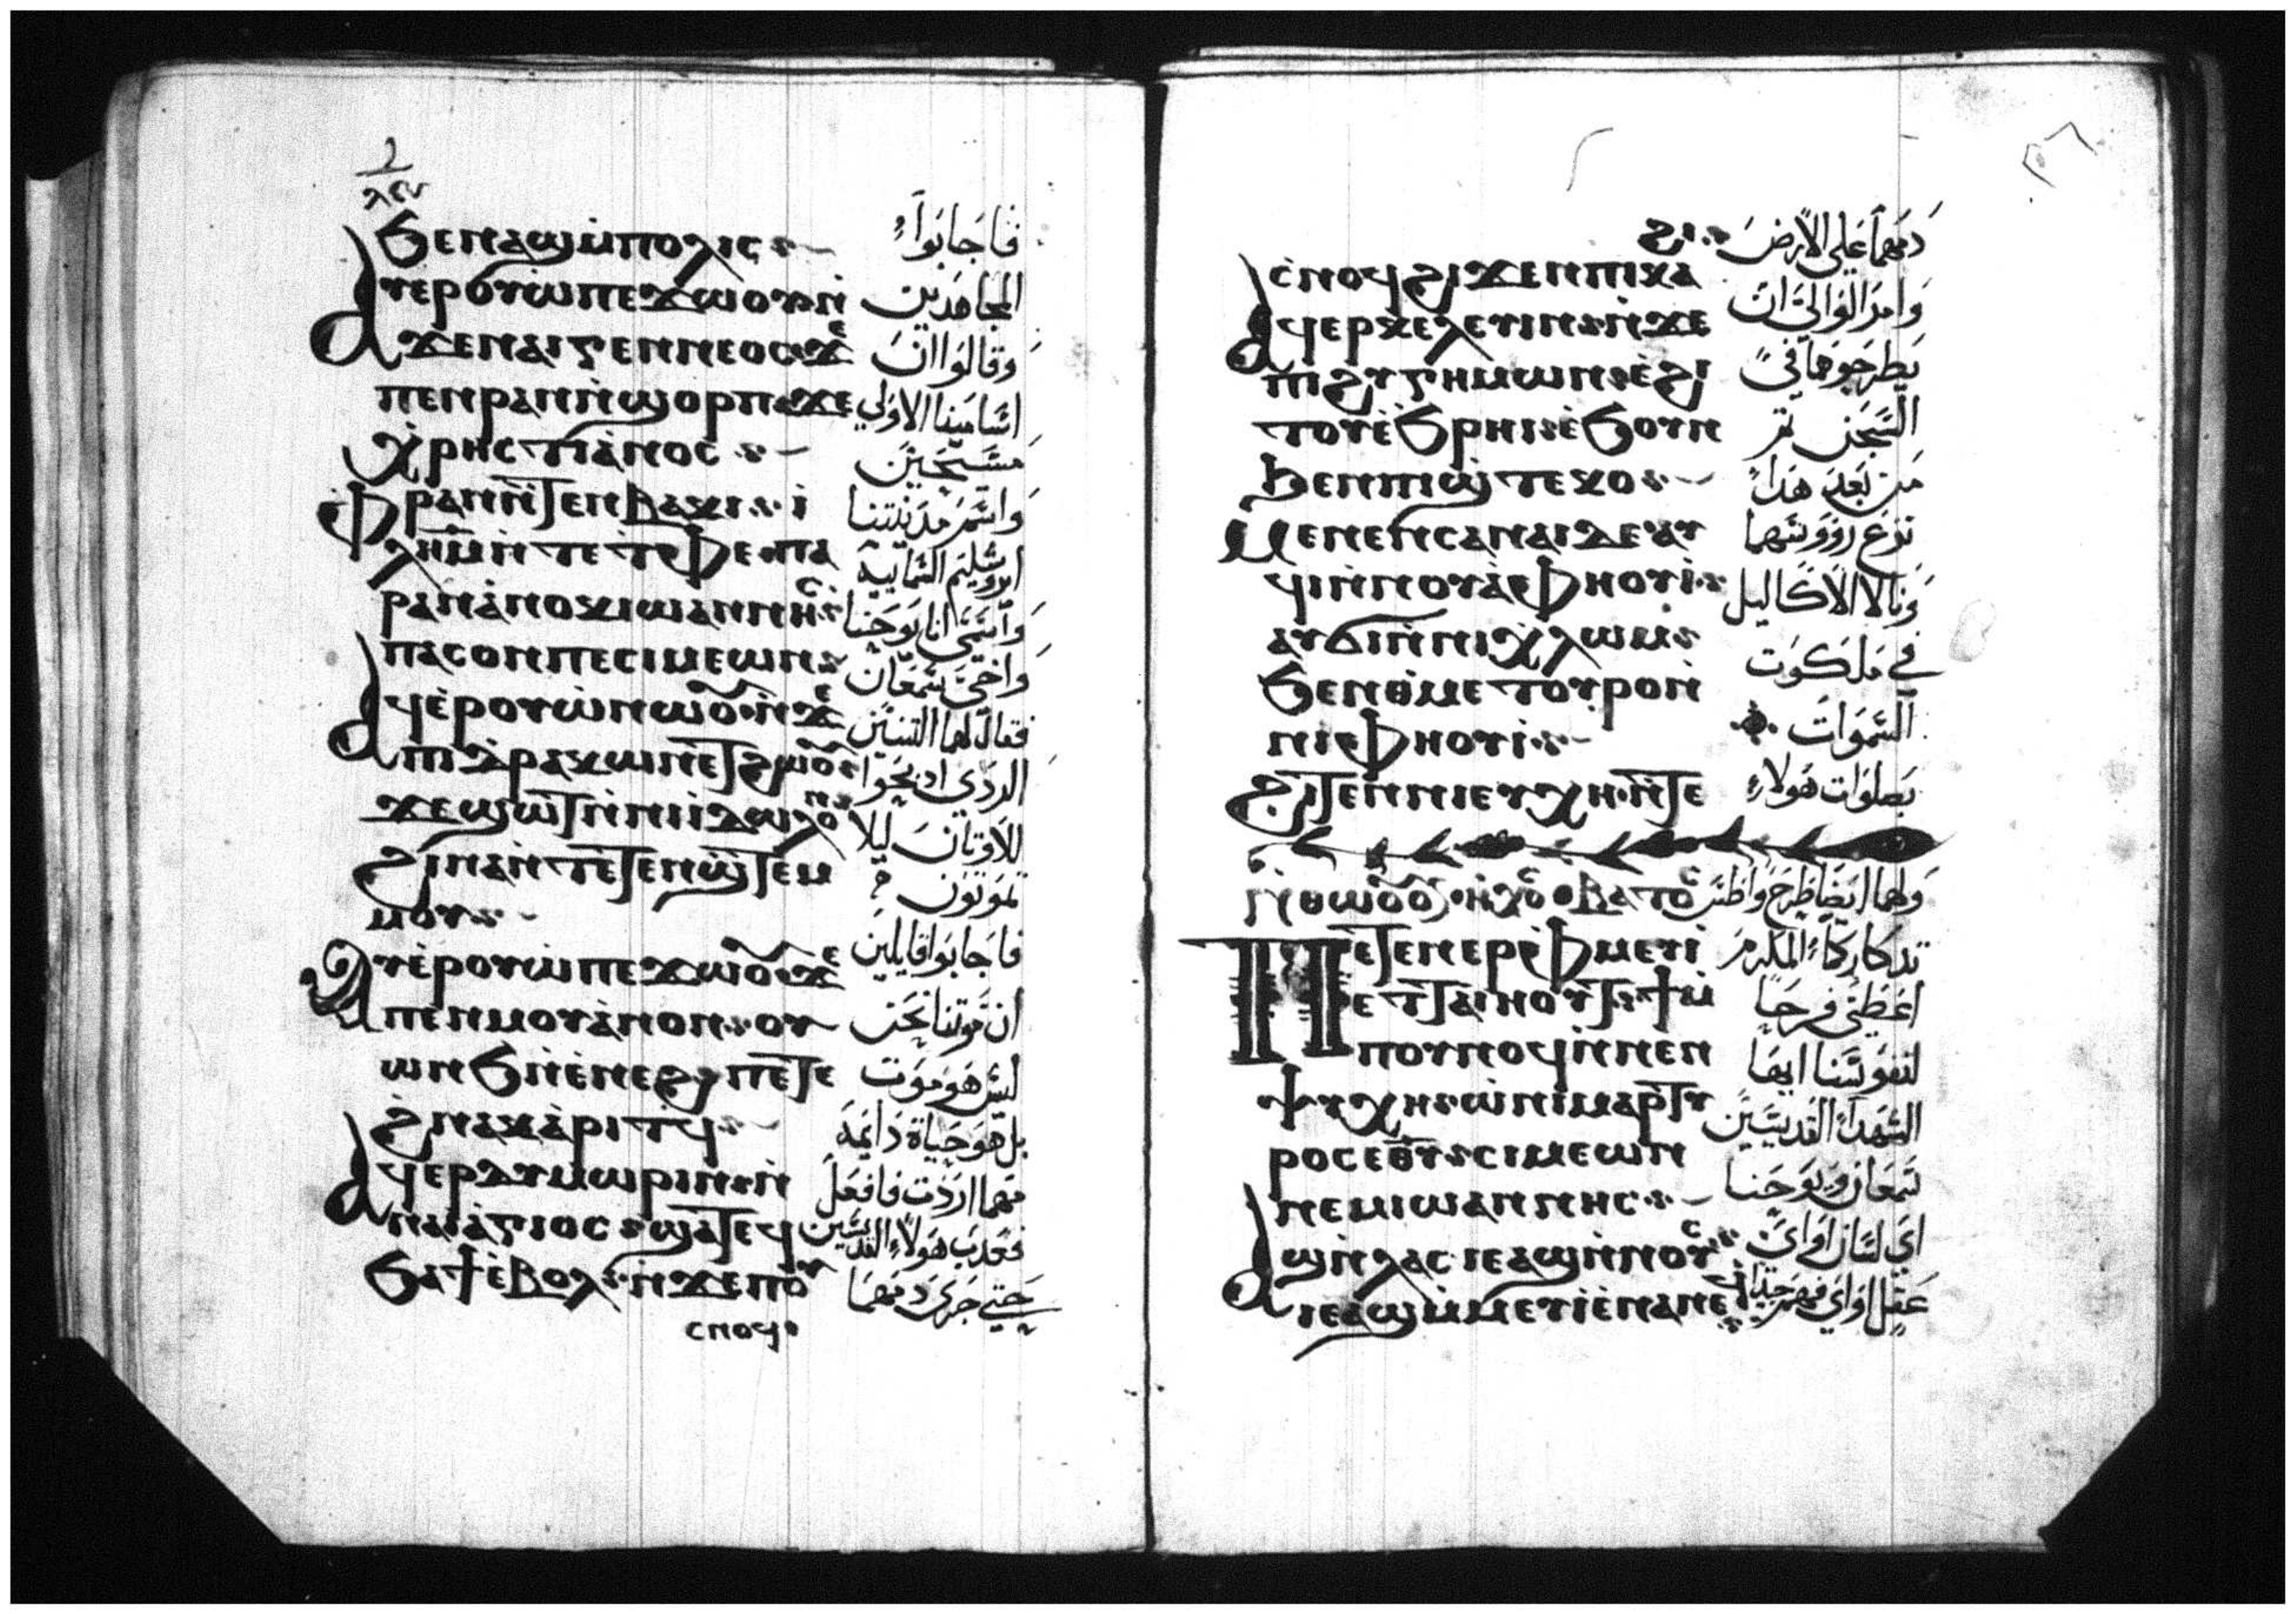 ϧⲉⲛⲁϣⲙ̀ⲡⲟⲗⲓⲥ
ⲁⲩⲉⲣⲟⲩⲱ̀ⲡⲉϫⲱⲟⲩⲛ̀
ϫⲉⲛⲁⲓⲅⲉⲛⲛⲉⲟⲥϫⲉ
ⲡⲉⲛⲣⲁⲛⲛ̀ϣⲟⲣⲡⲡⲉϫⲉ
ⲭⲣⲏⲥⲧⲓⲁⲛⲟⲥ
ⲫⲣⲁⲛⲛ̀ⲧⲉⲛⲃⲁⲕⲓ
ⲣⲁⲛⲁⲛⲟⲕⲓⲱⲁⲛⲛⲏⲥ
ⲡⲁⲥⲟⲛⲡⲉⲥⲓⲙⲉⲱⲛ
ⲁϥⲉⲣⲟⲩⲱ̀ⲛⲱⲟⲩⲛ̀ϫⲉ
ⲡⲓⲇⲣⲁⲕⲱⲛⲉⲧϩⲱⲟⲩ
ϫⲉϣⲱⲧⲛ̀ⲛⲓⲓⲇⲱⲗⲟⲛ
ϩⲓⲛⲁⲛ̀ⲧⲉⲧⲉⲛϣ̀ⲧⲉⲙ
ⲙⲟⲩ
ⲁⲩⲉⲣⲟⲩⲱ̀ⲡⲉϫⲱⲟⲩϫⲉ
ⲡⲉⲛⲙⲟⲩⲁ̀ⲛⲟⲛⲟⲩ
ⲱⲛϧⲛ̀ⲉ̀ⲛⲉϩⲡⲉⲧⲉ
ϩⲛⲁⲕⲁ̀ⲣⲓⲧϥ
ⲁϥⲉⲣⲇⲩⲙⲱⲣⲓⲛⲛ̀
ⲛⲁⲓⲁ̀ⲅⲓⲟⲥϣⲁⲧⲉϥ
ϧⲁϯⲉ̀ⲃⲟⲗⲛ̀ϫⲉⲡⲟⲩ
ⲥⲛⲟϥ
فاجابوا
المجاهدين
وقالوا ان
اسامينا الاولي
مسيحين
واسم مدينتنا
اوروشليم السمايية
واسمي انا يوحنا
واخي سمعان
فقال لهما التنين
الردي اذبحوا
للاوتان ليلا
تموتون
فاجابوا قايلين
ان موتنا نحن
ليس هو موت
بل هو حياة دايمة
مهما اردت فافعل
فعدب هولاء القديسين
حتي جري دمهما
ⲥ̀ⲛⲟϥϩⲓϫⲉⲛⲡⲓⲕⲁ
ⲁϥⲉⲣⲕⲉⲗⲉⲩⲓⲛⲛ̀ϫⲉ
ⲡⲓϩⲩⲅⲏⲙⲱⲛⲉ̀ϩⲓ
ⲧⲟⲩⲉ̀ϧⲣⲏⲓⲉ̀ϧⲟⲩⲛ
ϧⲉⲛⲡⲓϣ̀ⲧⲉⲕⲟ
ⲙⲉⲛⲉⲛⲥⲁⲛⲁⲓⲇⲉⲁⲩ
ϥⲓⲛ̀ⲛⲟⲩⲁ̀ⲫⲏⲟⲩⲓ
ⲁⲩϭⲓⲛ̀ⲛⲓⲭⲗⲱⲙ
ϧⲉⲛⲑⲙⲉⲧⲟⲩⲣⲟⲛ̀
ⲛⲓⲫⲏⲟⲩⲓ
ϩⲓⲧⲉⲛⲛⲓⲉⲩⲭⲏⲛ̀ⲧⲉ
ⲡⲉⲧⲉⲛⲉⲣⲫ̀ⲙⲉⲩⲓ
ⲉⲧⲧⲁⲓⲏⲟⲩⲧϯⲙ̀
ⲡⲟⲩⲛⲟϥⲛ̀ⲛⲉⲛ
ⲯⲩⲭⲏⲱ̀ⲛⲓⲙⲁⲣⲧⲩ
ⲣⲟⲥⲉⲑⲩⲥⲓⲙⲉⲱⲛ
ⲛⲉⲙⲓⲱⲁⲛⲛⲏⲥ
ⲁϣⲛ̀ⲗⲁⲥⲓⲉⲁϣⲛ̀ⲛⲟⲩⲥ
ⲓⲉⲁϣⲙ̀ⲙⲉⲧⲓⲉ̀ⲛⲁⲛⲉ
دمهما علي الارض
وامر الوالي ان
يطرحوهما في
السجن تم
من بعد هدا
نزع رووسهما
ونالا الاكاليل
في ملكوت
السموات
بصلوات هولاء
ولهما ايضا طرح واطس
تدكاركما المكرم
اعطي فرحا
لنفوسنا ايها
الشهداء القديسين
سمعان ويوحنا
اي لسان او اي
عقل او اي فهم جيدا